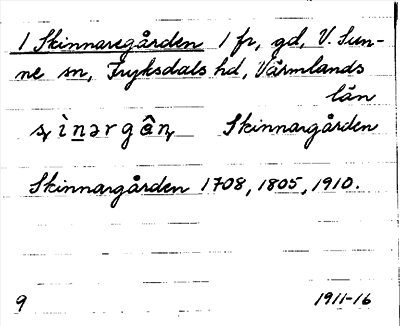 1 Skinnaregården 1 fr, gd, V. Sun-
ne sn, Fryksdals hd, Värmlands
län
Skinnargården
Skinnargården 1708, 1805, 1910.
9 1911-16